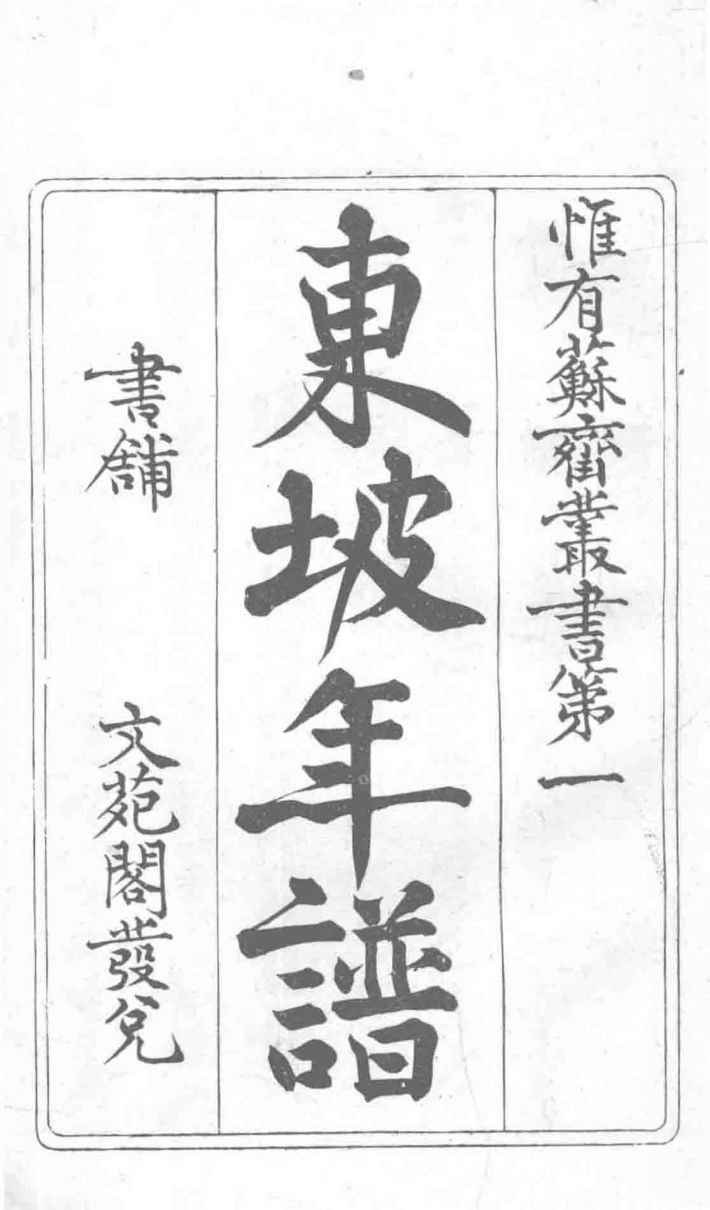 惟有蘇齋叢書第一
東坡年譜
書舖　文苑閣發兌